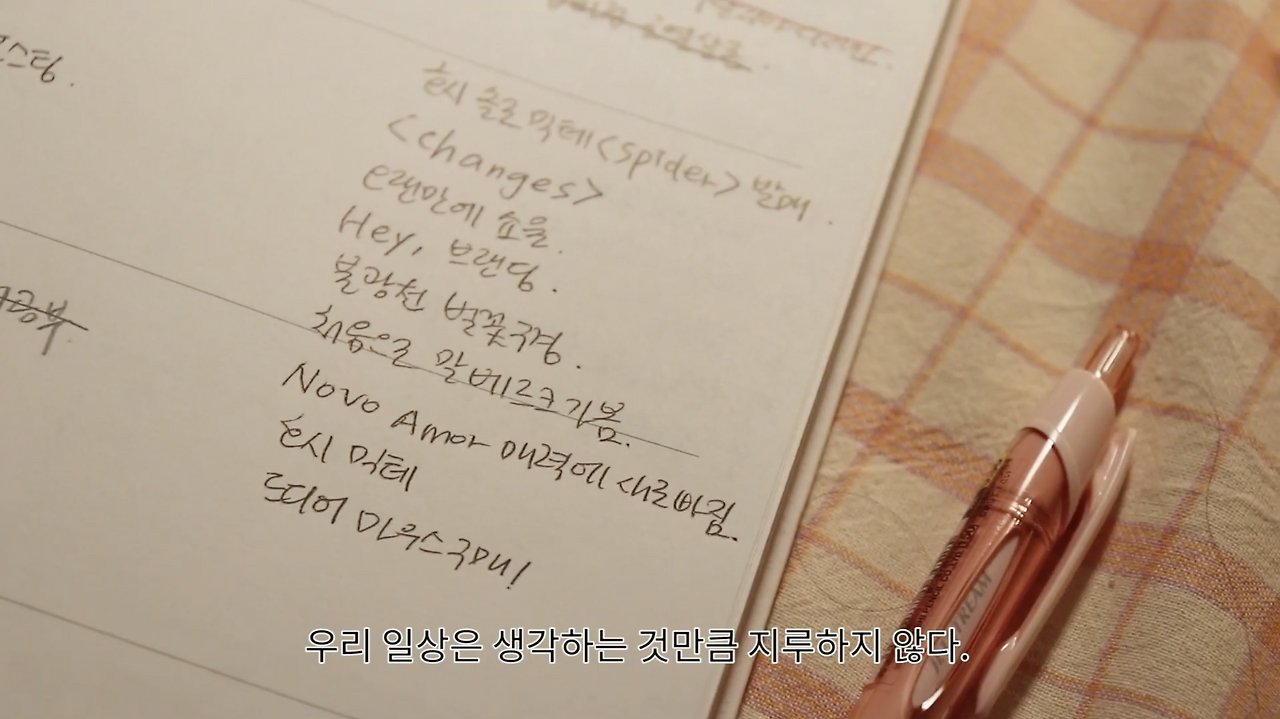 호시 솔로 믹테 <spider> 발매.
<changes>
오랜만에 쇼울.
Hey, 브랜딩.
불광천 벚꽃구경.
처음으로 말베르크 가봄.
Novo Amor 매력에 새로 빠짐.
호시 믹테
드디어 마우스 구매!
우리 일상은 생각하는 것만큼 지루하지 않다.